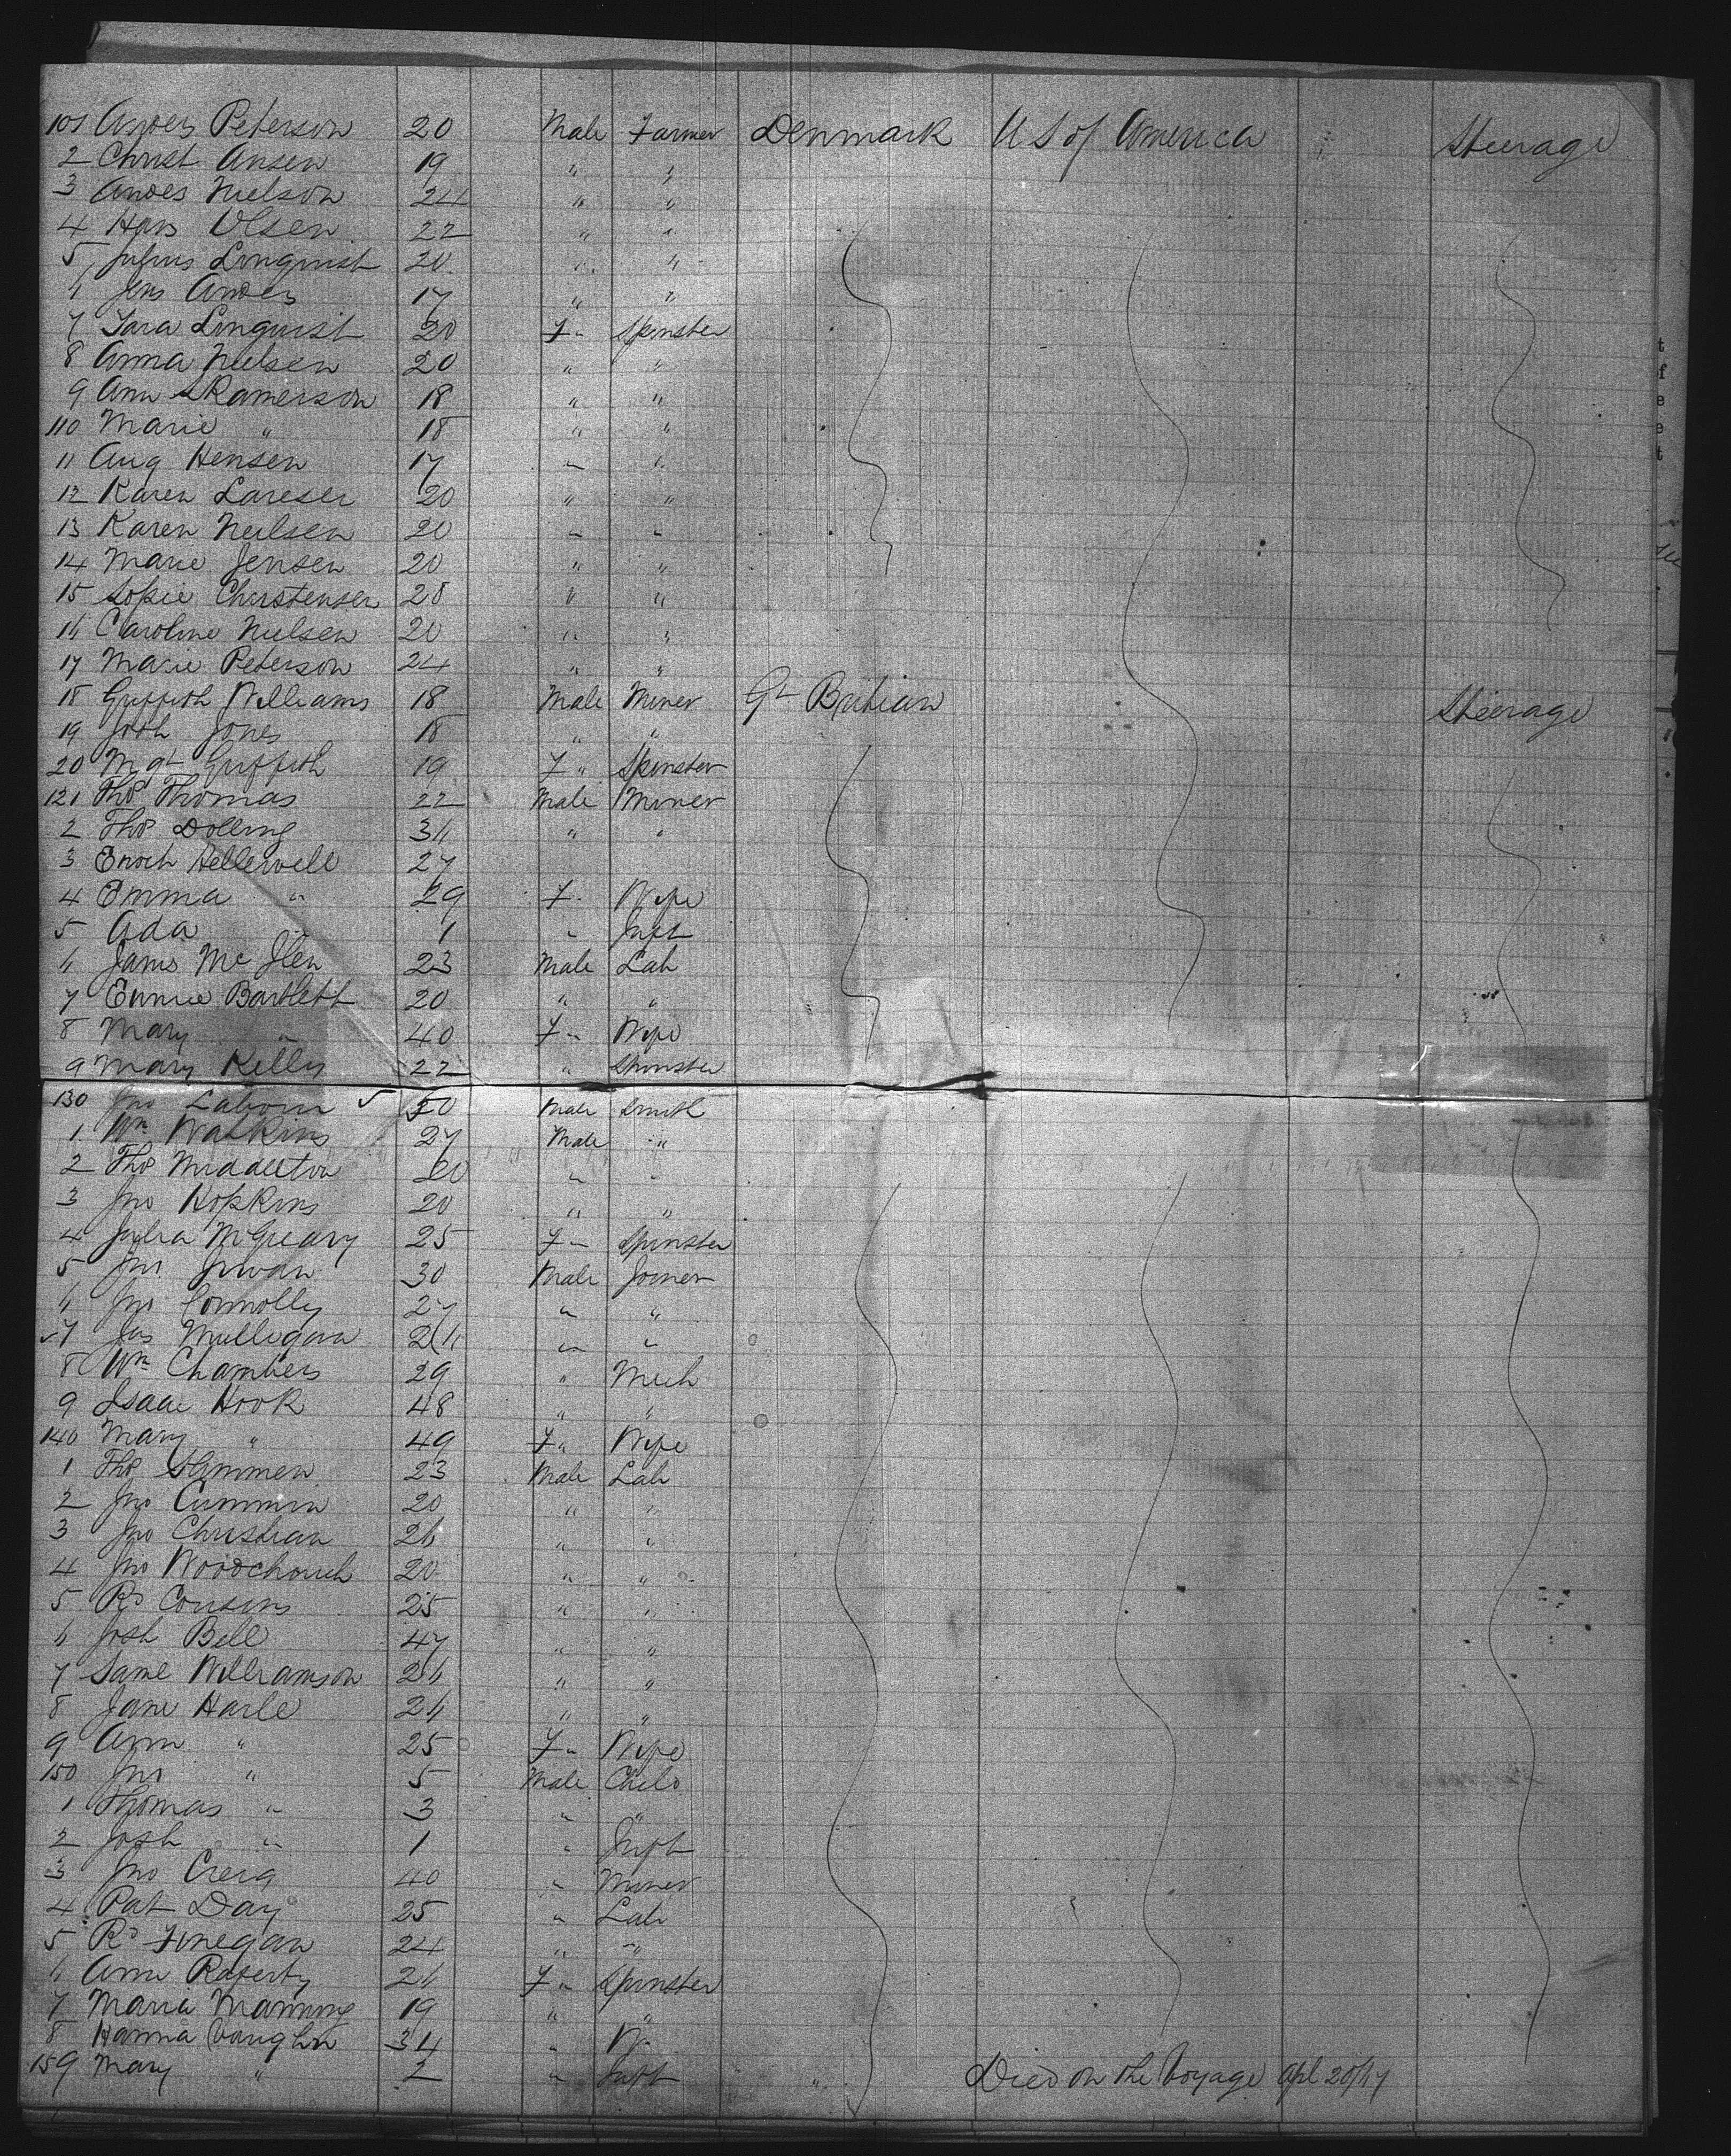 101 Andes Peterson 20 Male Farmer Denmark U S of America Steerage
2 Christ Ansen 19 " "
3 Andes Nielson 24 " "
4 Hans Olsen 22 " "
5 Julius Linquist 20 " "
6 Jens Andes 17 " "
7 Linquist 20 F " Spinster
8 Anna Nielsen 20 " "
9 Ann Skamerson 18 " "
110 Marie " 18 " "
11 Aug Hensen 17 " "
12 Karen Lareser 20 " "
13 Karen Neilsen 20 " "
14 Marie Jensen 20 " "
15 Sopie Christensen 28 " "
16 Caroline Nielsen 20 " "
17 Marie Peterson 24 " "
18 Griffith Williams 18 Male Miner Gt Britian Steerage
19 Joth Jones 18 " "
20 Mgt Griffith 19 F " Spinster
121 Thos Thomas 22 Male Miner
2 Thos Dolling 36 " "
3 Enoch Hellewell 27
4 Emma " 29 F " Wife
5 Ada " 1 " Inft
6 James Mc 23 Male Lab
7 Bartlett 20 " "
8 Mary " 40 F " Wife
9 Mary Kelly 22 " Spinster
130 Jno 50 Male Smith
1 Wm Watkins 27 Male "
2 Thos Middleton 20 " "
3 Jno Hopkins 20 " "
4 Julia McGreary 25 F " Spinster
5 Jno 30 Male Joiner
6 Jno Connolly 27 " "
7 Jas Mulligan 26 " "
8 Wm Chambers 29 " Mech
9 Isaac Hook 48 " "
140 Mary " 49 F " Wife
1 Thos 23 Male Lab
2 Jno Cummin 20 " "
3 Jno Christian 26 " "
4 Jno 20 " "
5 Rd Cousins 25 " "
6 Josh Bell 47 " "
7 Saml Williamson 26 " "
8 Jane Harle 26 " "
9 Ann " 25 F " Wife
150 Jno " 5 Male Child
1 Thomas " 3 " "
2 Josh " 1 " Inft
3 Jno Creig 40 " Miner
4 Pat Day 25 " Lab
5 Rd Finegan 24 " "
6 Ann Raferty 26 F " Spinster
7 Maria Manning 19 " "
8 Hanna Vaughn 34 " W.
159 Mary " 2 " Inft " Died on the Voyage Apl 20/77